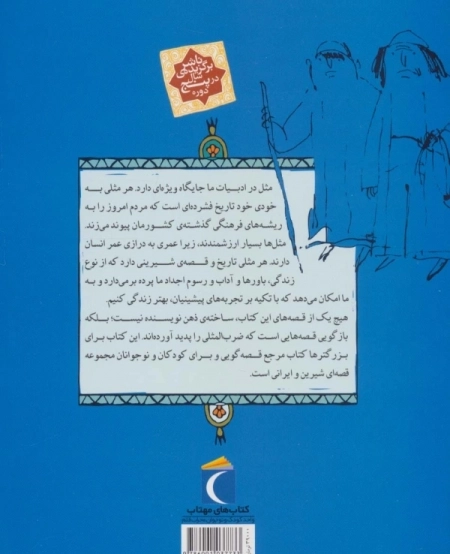 ناشر
برگزیده‌ی
سال
در پنج
دوره
مثل در ادبیات ما جایگاه ویژه‌ای دارد. هر مثلی به
خودی خود تاریخ فشرده‌ای است که مردم امروز را به
ریشه‌های فرهنگی گذشته‌ی کشورمان پیوند می‌زند.
مثل‌ها بسیار ارزشمندند، زیرا عمری به درازی عمر انسان
دارند. هر مثلی تاریخ و قصه‌ی شیرینی دارد که از نوع
زندگی، باورها و آداب و رسوم اجداد ما پرده برمی‌دارد و به
ما امکان می‌دهد که با تکیه بر تجربه‌های پیشینیان، بهتر زندگی کنیم.
هیچ یک از قصه‌های این کتاب، ساخته‌ی ذهن نویسنده نیست؛ بلکه
بازگویی قصه‌هایی است که ضرب‌المثلی را پدید آورده‌اند. این کتاب برای
بزرگترها کتاب مرجع قصه‌گویی و برای کودکان و نوجوانان مجموعه
قصه‌ای شیرین و ایرانی است.
کتاب‌های مهتاب